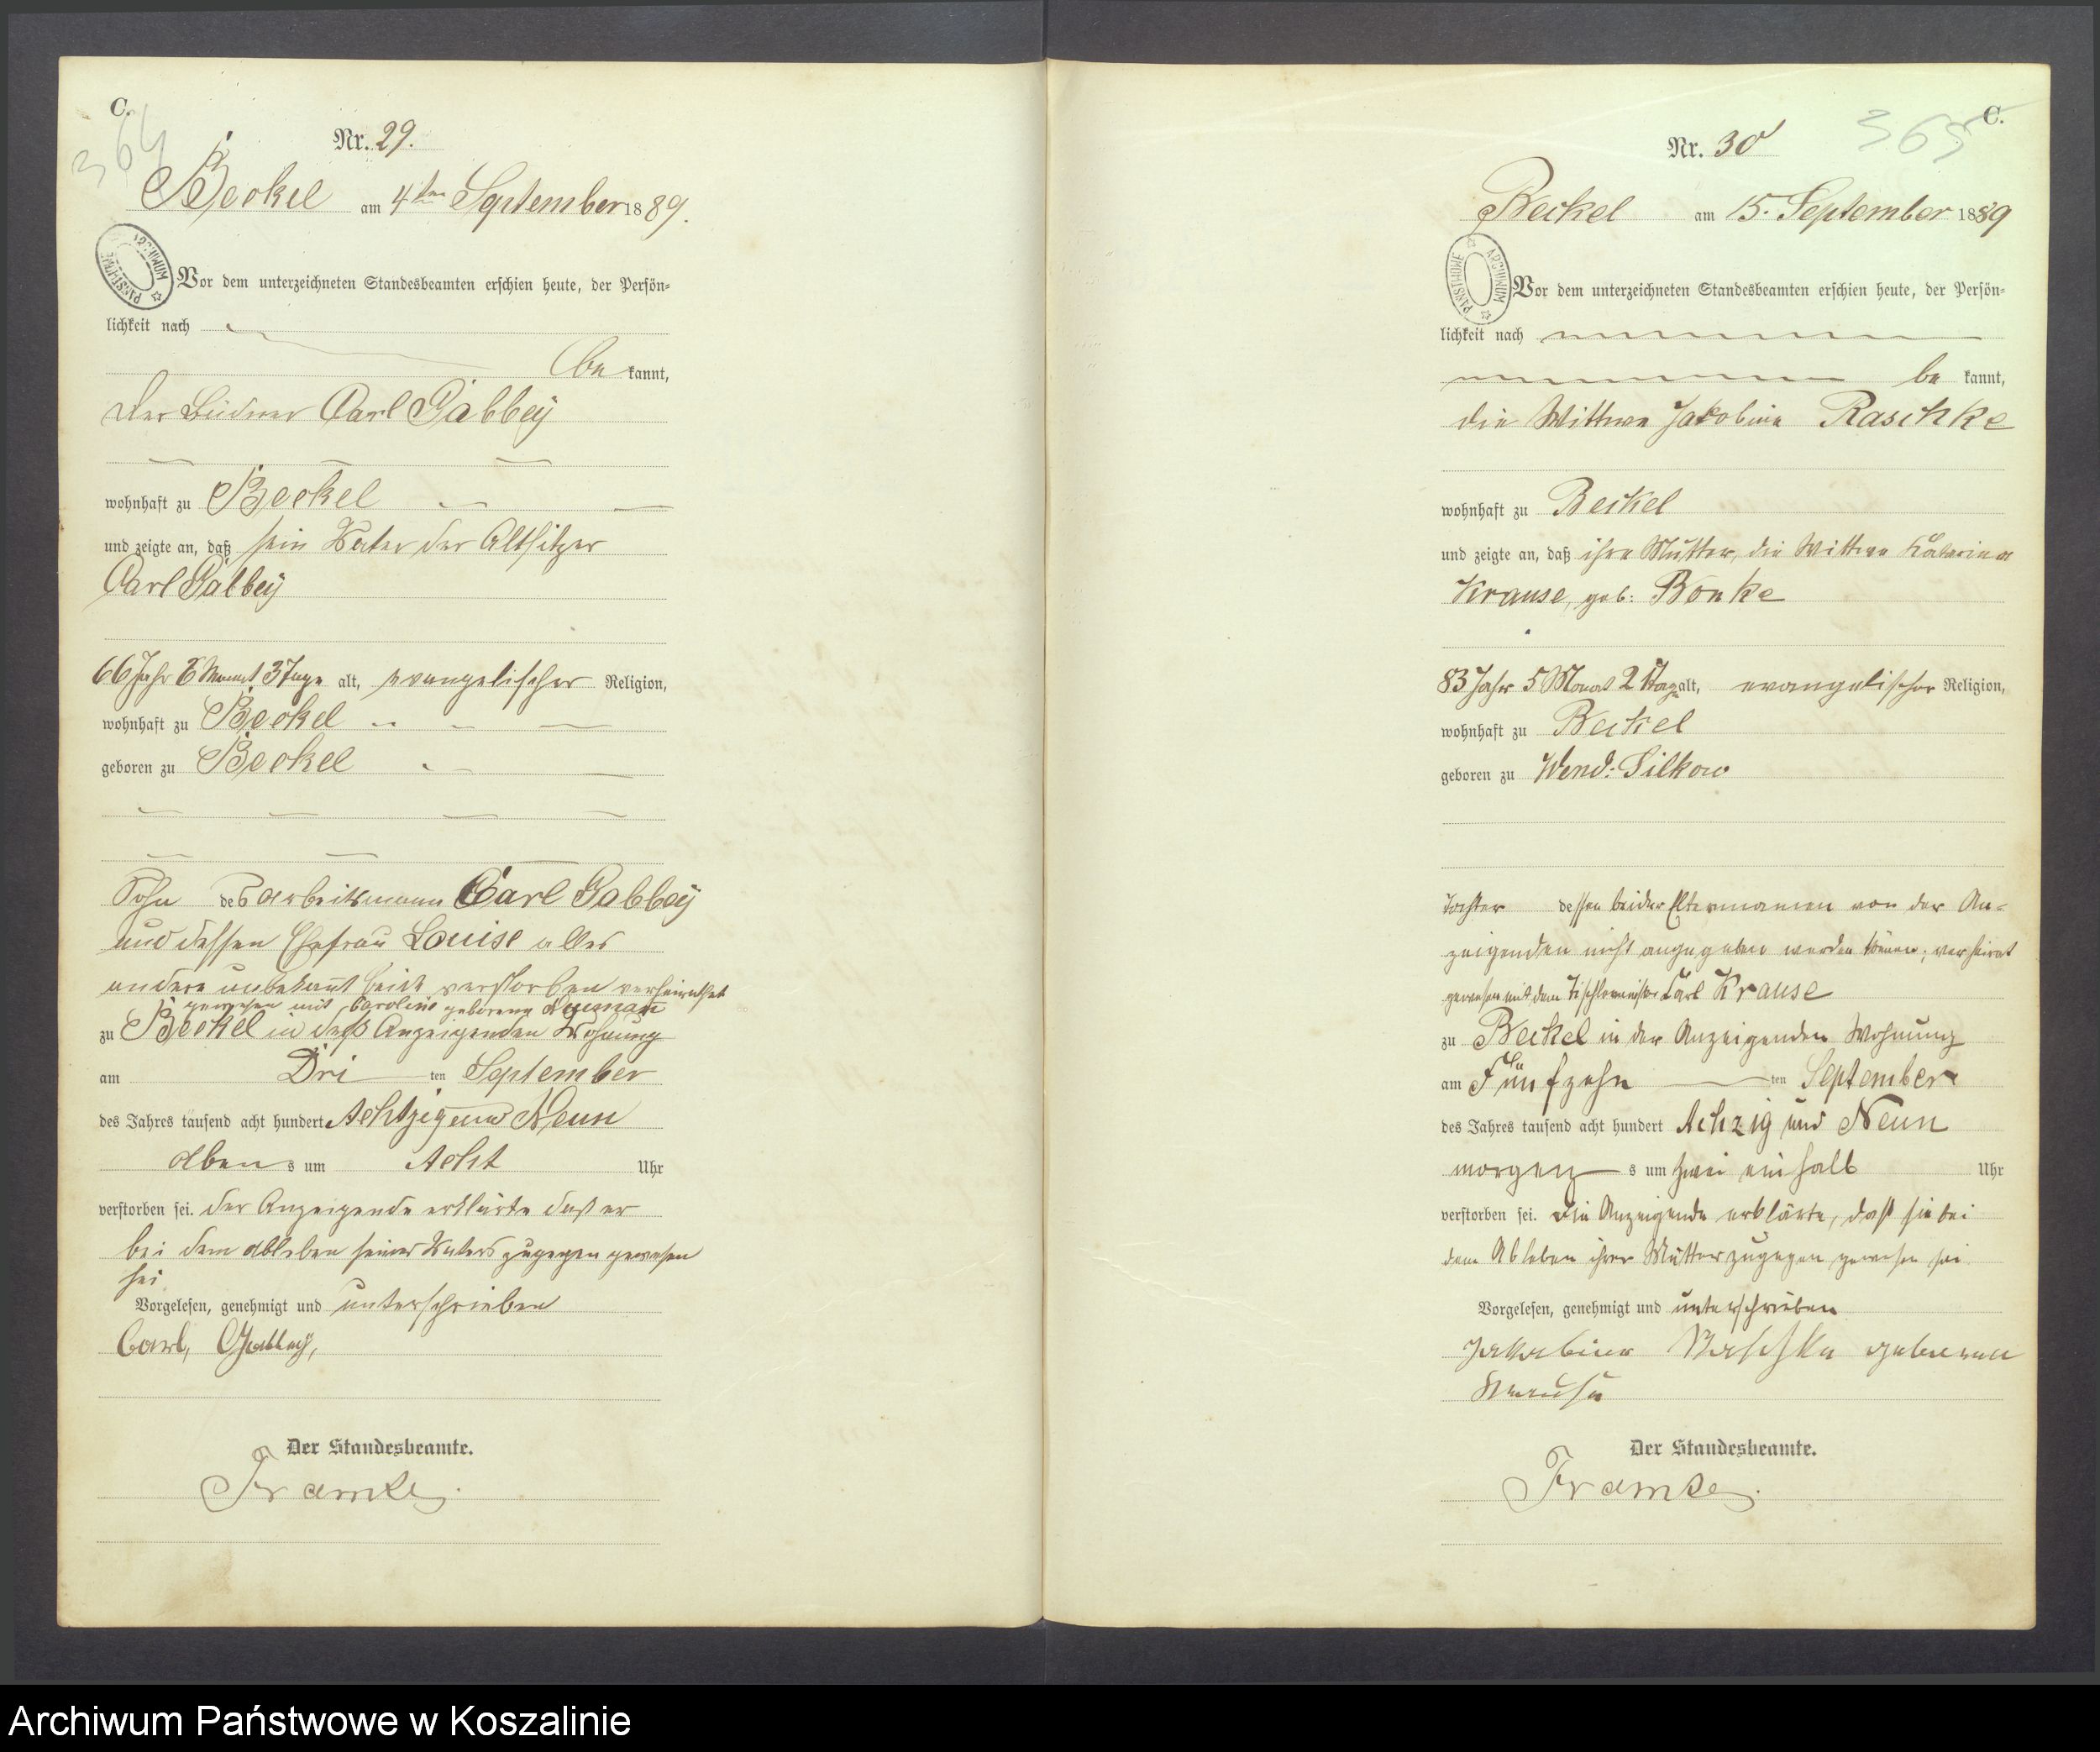 C.
364
Nr. 29.
Beckel am 4ten September 1889.
ARCHIWUM PAŃSTWOWE
Vor dem unterzeichneten Standesbeamten erschien heute, der Persön=
lichkeit nach
be kannt,
der Büdner Carl Gabbey
wohnhaft zu Beckel
und zeigte an, daß sein Vater der Altsitzer
Carl Gabbey
66 Jahr 6 Monat 3 Tage alt, evangelischer Religion,
wohnhaft zu Beckel
geboren zu Beckel
Sohn des Arbeitsmann Carl Gabbey
und dessen Ehefrau Louise alles
andere unbekannt beide verstorben verheirathet
gewesen mit Caroline geborene Neumann
zu Beckel in des Anzeigenden Wohnung
am Dri ten September
des Jahres tausend acht hundert Achtzig und Neun
Aben s um Acht Uhr
verstorben sei. Der Anzeigende erklärte daß er
bei dem Ableben seines Vaters zugegen gewesen
sei
Vorgelesen, genehmigt und unterschrieben
Carl, Gabbey,
Der Standesbeamte.
Framke.
C.
365
Nr. 30
Beckel am 15. September 1889
ARCHIWUM PAŃSTWOWE
Vor dem unterzeichneten Standesbeamten erschien heute, der Persön=
lichkeit nach
be kannt,
die Wittwe Jakobine Raschke
wohnhaft zu Beckel
und zeigte an, daß ihre Mutter, die Wittwe Katarina
Krause, geb: Bonke
83 Jahr 5 Monat 2 Tag alt, evangelischer Religion,
wohnhaft zu Beckel
geboren zu Wend: Silkow
Tochter dessen beider Elternnamen von der An=
zeigenden nicht angegeben werden können; verheirat
gewesen mit dem Tischlermeister Karl Krause
zu Beckel in der Anzeigenden Wohnung
am Fünfzehn ten September
des Jahres tausend acht hundert Achzig und Neun
morgen s um zwei ein halb Uhr
verstorben sei. Die Anzeigende erklärte, daß sie bei
dem Ableben ihrer Mutter zugegen gewesen sei.
Vorgelesen, genehmigt und unterschrieben
Jakobine Raschke geborene
Krause
Der Standesbeamte.
Framke.
Archiwum Państwowe w Koszalinie